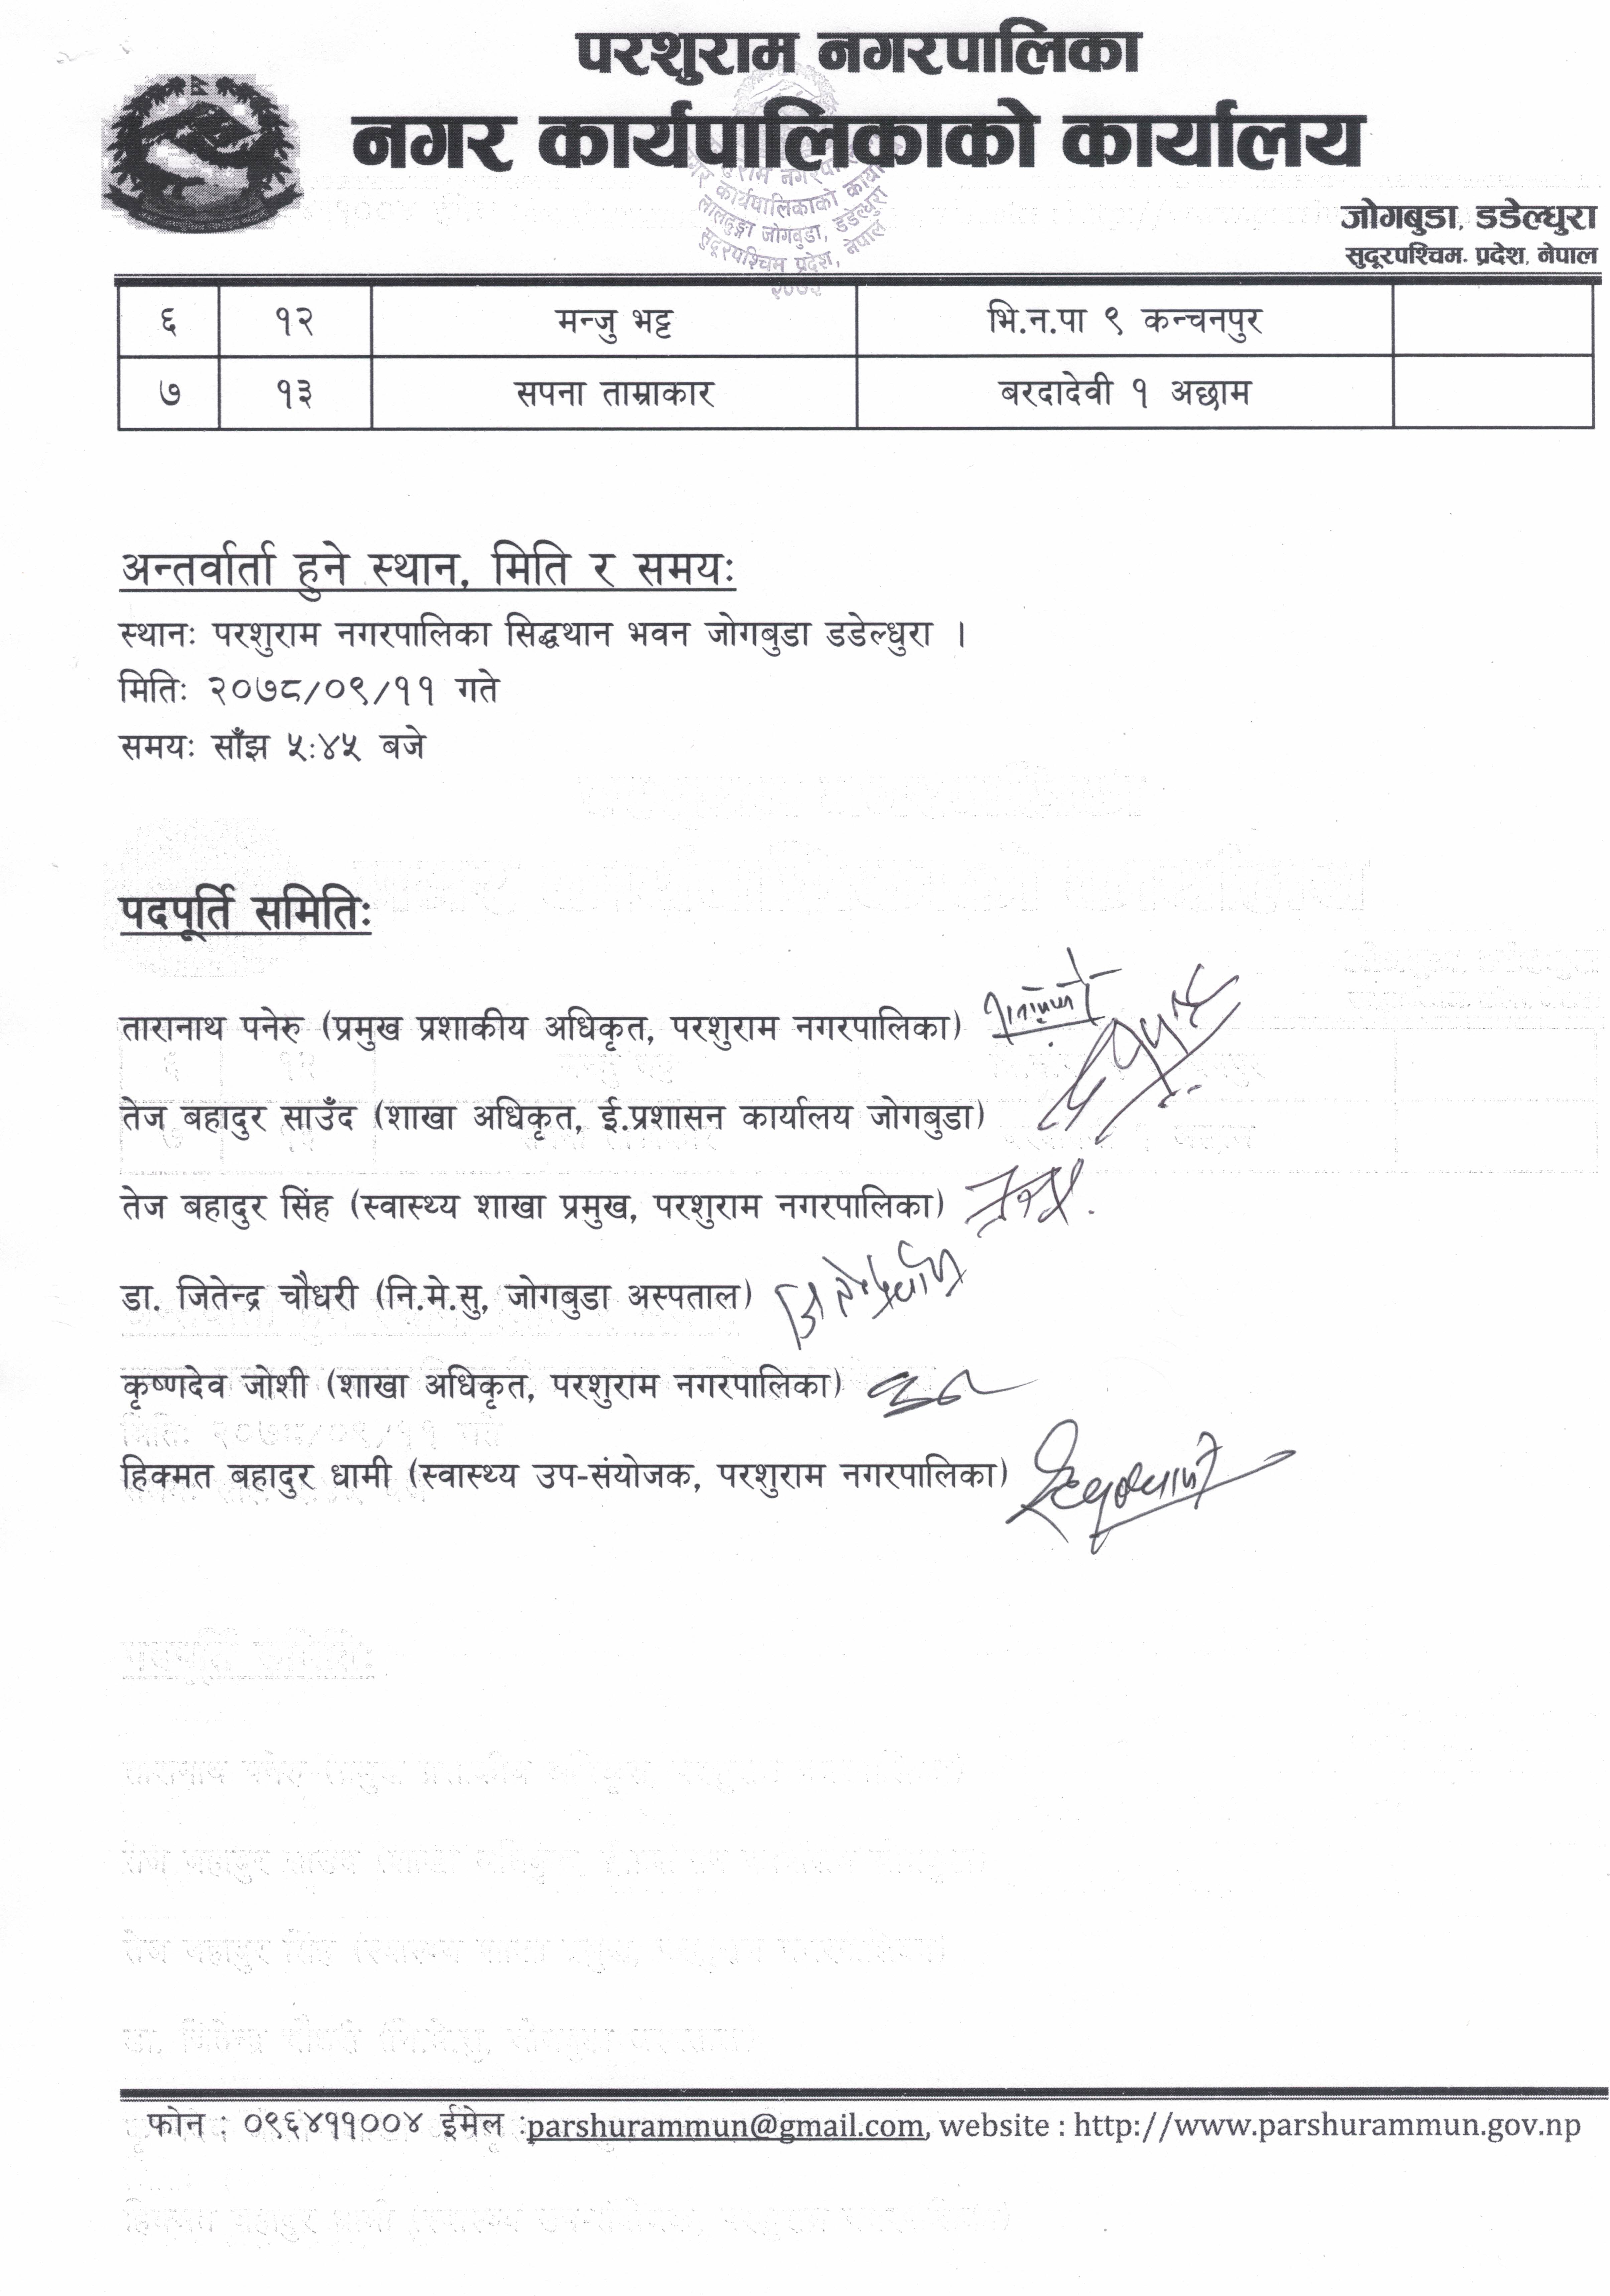 परशुराम नगरपालिका
नगर कार्यपालिकाको कार्यालय
नगर कार्यपालिकाको कार्यालय
लालढुङ्गा जोगवुडा, डडेल्धुरा
सुदूरपश्चिम प्रदेश, नेपाल
२०७३
जोगबुडा, डडेल्धुरा
सुदूरपश्चिम प्रदेश, नेपाल
६ १२ मन्जु भट्ट भि.न.पा ९ कन्चनपुर
७ १३ सपना ताम्राकार बरदादेवी १ अछाम
अन्तर्वार्ता हुने स्थान, मिति र समयः
स्थानः परशुराम नगरपालिका सिद्धथान भवन जोगबुडा डडेल्धुरा ।
मितिः २०७८/०९/११ गते
समयः साँझ ५:४५ बजे
पदपूर्ति समितिः
तारानाथ पनेरु (प्रमुख प्रशाकीय अधिकृत, परशुराम नगरपालिका)
तेज बहादुर साउँद (शाखा अधिकृत, ई.प्रशासन कार्यालय जोगबुडा)
तेज बहादुर सिंह (स्वास्थ्य शाखा प्रमुख, परशुराम नगरपालिका)
डा. जितेन्द्र चौधरी (नि.मे.सु, जोगबुडा अस्पताल)
कृष्णदेव जोशी (शाखा अधिकृत, परशुराम नगरपालिका)
हिक्मत बहादुर धामी (स्वास्थ्य उप-संयोजक, परशुराम नगरपालिका)
फोन : ०९६४११००४ ईमेल :parshurammun@gmail.com, website : http://www.parshurammun.gov.np